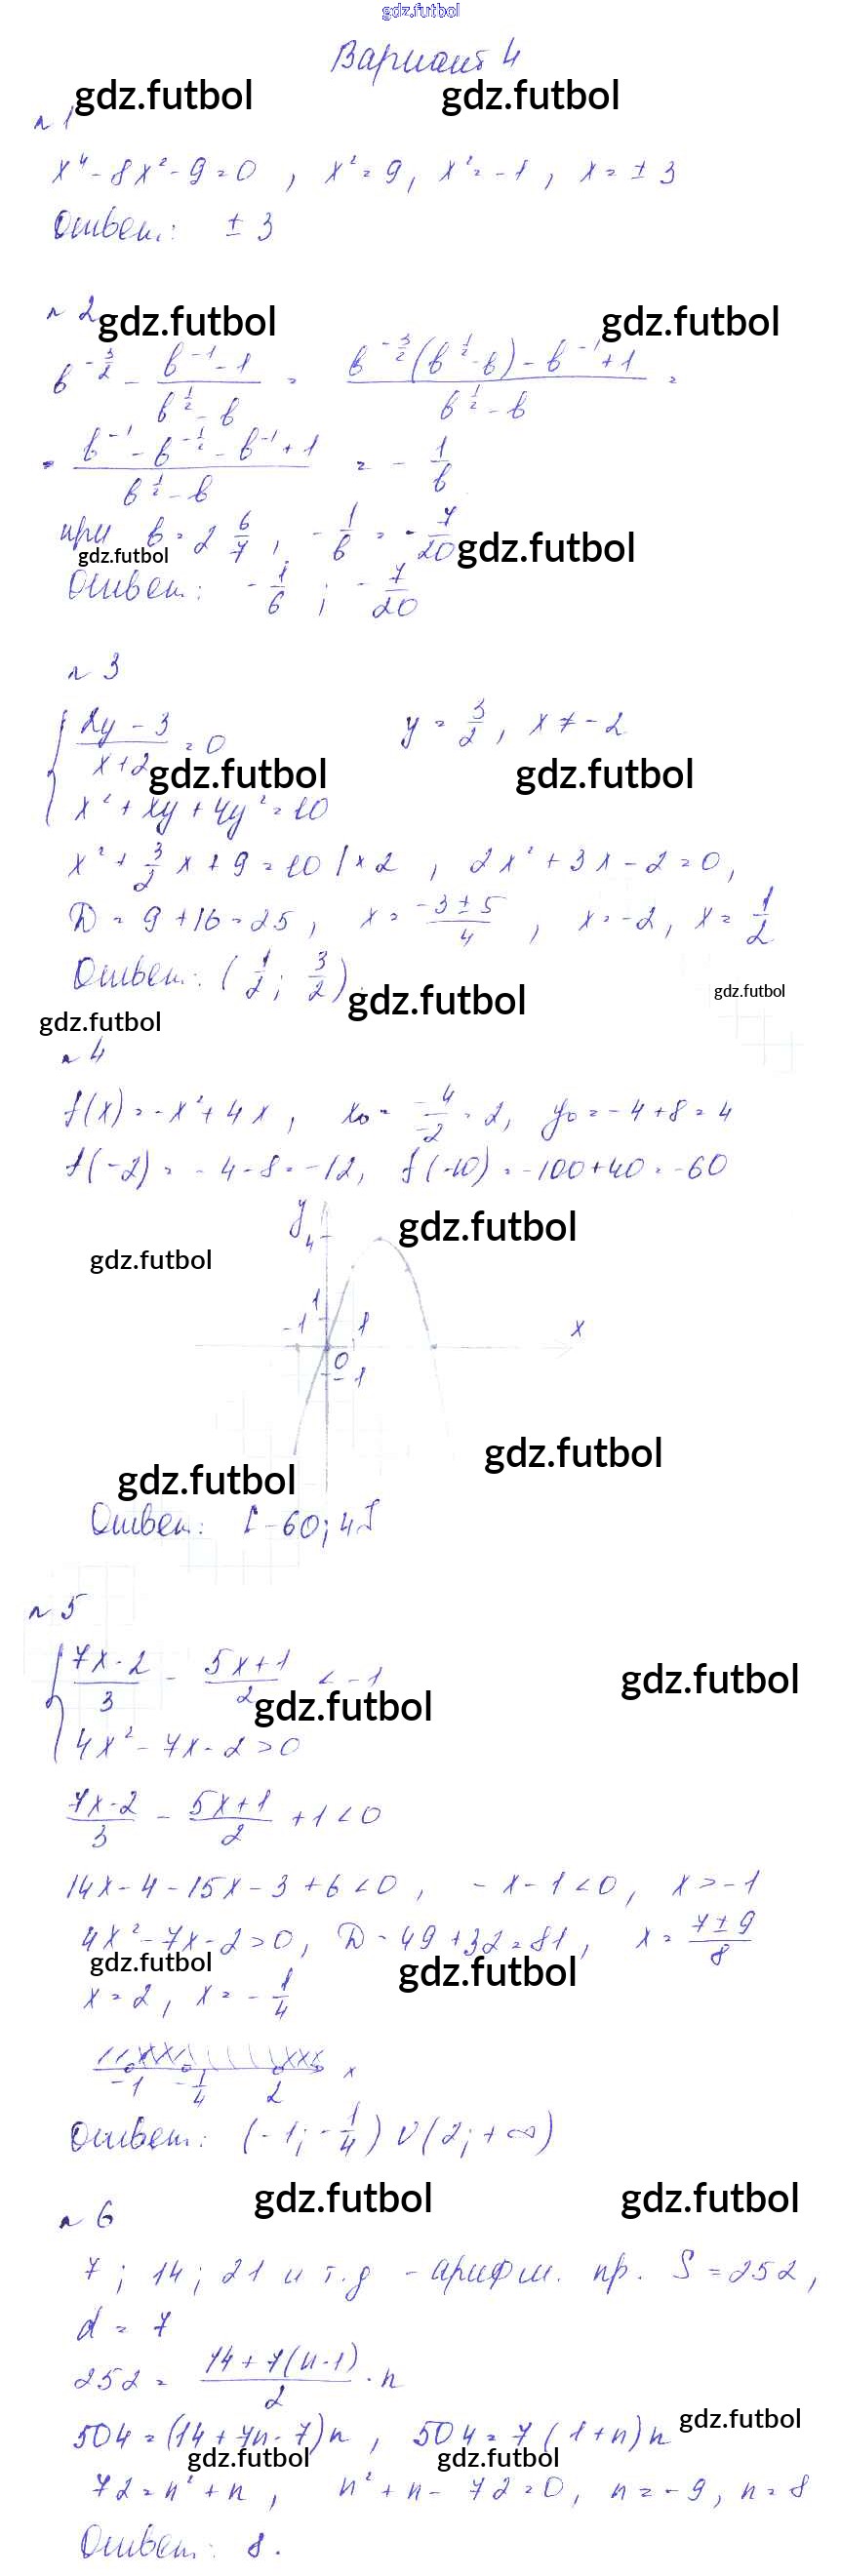 gdz.futbol
Вариант 4
gdz.futbol gdz.futbol
n 1
x⁴ - 8x² - 9 = 0 , x² = 9, x² = -1 , x = ± 3
Ответ: ± 3
n 2
gdz.futbol gdz.futbol
b^(-3/2) - (b⁻¹ - 1)/(b^(1/2) - b) = (b^(-3/2)(b^(1/2) - b) - b⁻¹ + 1)/(b^(1/2) - b) =
= (b⁻¹ - b^(-1/2) - b⁻¹ + 1)/(b^(1/2) - b) = - 1/b
при b = 2 6/7 , - 1/b = - 7/20
gdz.futbol gdz.futbol
Ответ: - 1/b ; - 7/20
n 3
{ (2y - 3)/(x + 2) = 0 y = 3/2 , x ≠ -2
gdz.futbol gdz.futbol
x² + xy + 4y² = 10
x² + 3/2 x + 9 = 10 | × 2 , 2x² + 3x - 2 = 0,
D = 9 + 16 = 25 , x = (-3 ± 5)/4 , x = -2, x = 1/2
Ответ: ( 1/2 ; 3/2 )
gdz.futbol gdz.futbol
gdz.futbol
n 4
f(x) = -x² + 4x , x₀ = -4/-2 = 2, y₀ = -4 + 8 = 4
f(-2) = -4 - 8 = -12, f(-10) = -100 + 40 = -60
y
4
gdz.futbol
gdz.futbol
1
-1 1 x
0
-1
gdz.futbol
gdz.futbol
Ответ: [-60; 4]
n 5
{ (7x - 2)/3 - (5x + 1)/2 < -1
gdz.futbol
gdz.futbol
4x² - 7x - 2 > 0
(7x - 2)/3 - (5x + 1)/2 + 1 < 0
14x - 4 - 15x - 3 + 6 < 0 , - x - 1 < 0 , x > -1
4x² - 7x - 2 > 0, D = 49 + 32 = 81 , x = (7 ± 9)/8
gdz.futbol gdz.futbol
x = 2 , x = - 1/4
-1 -1/4 2 x
Ответ: (-1; - 1/4) ∪ (2; +∞)
gdz.futbol gdz.futbol
n 6
7 ; 14 ; 21 и т.д - арифм. пр. S = 252 ,
d = 7
252 = (14 + 7(n - 1))/2 · n
504 = (14 + 7n - 7) n , 504 = 7 (1 + n) n
gdz.futbol
gdz.futbol gdz.futbol
72 = n² + n , n² + n - 72 = 0 , n = -9 , n = 8
Ответ: 8 .